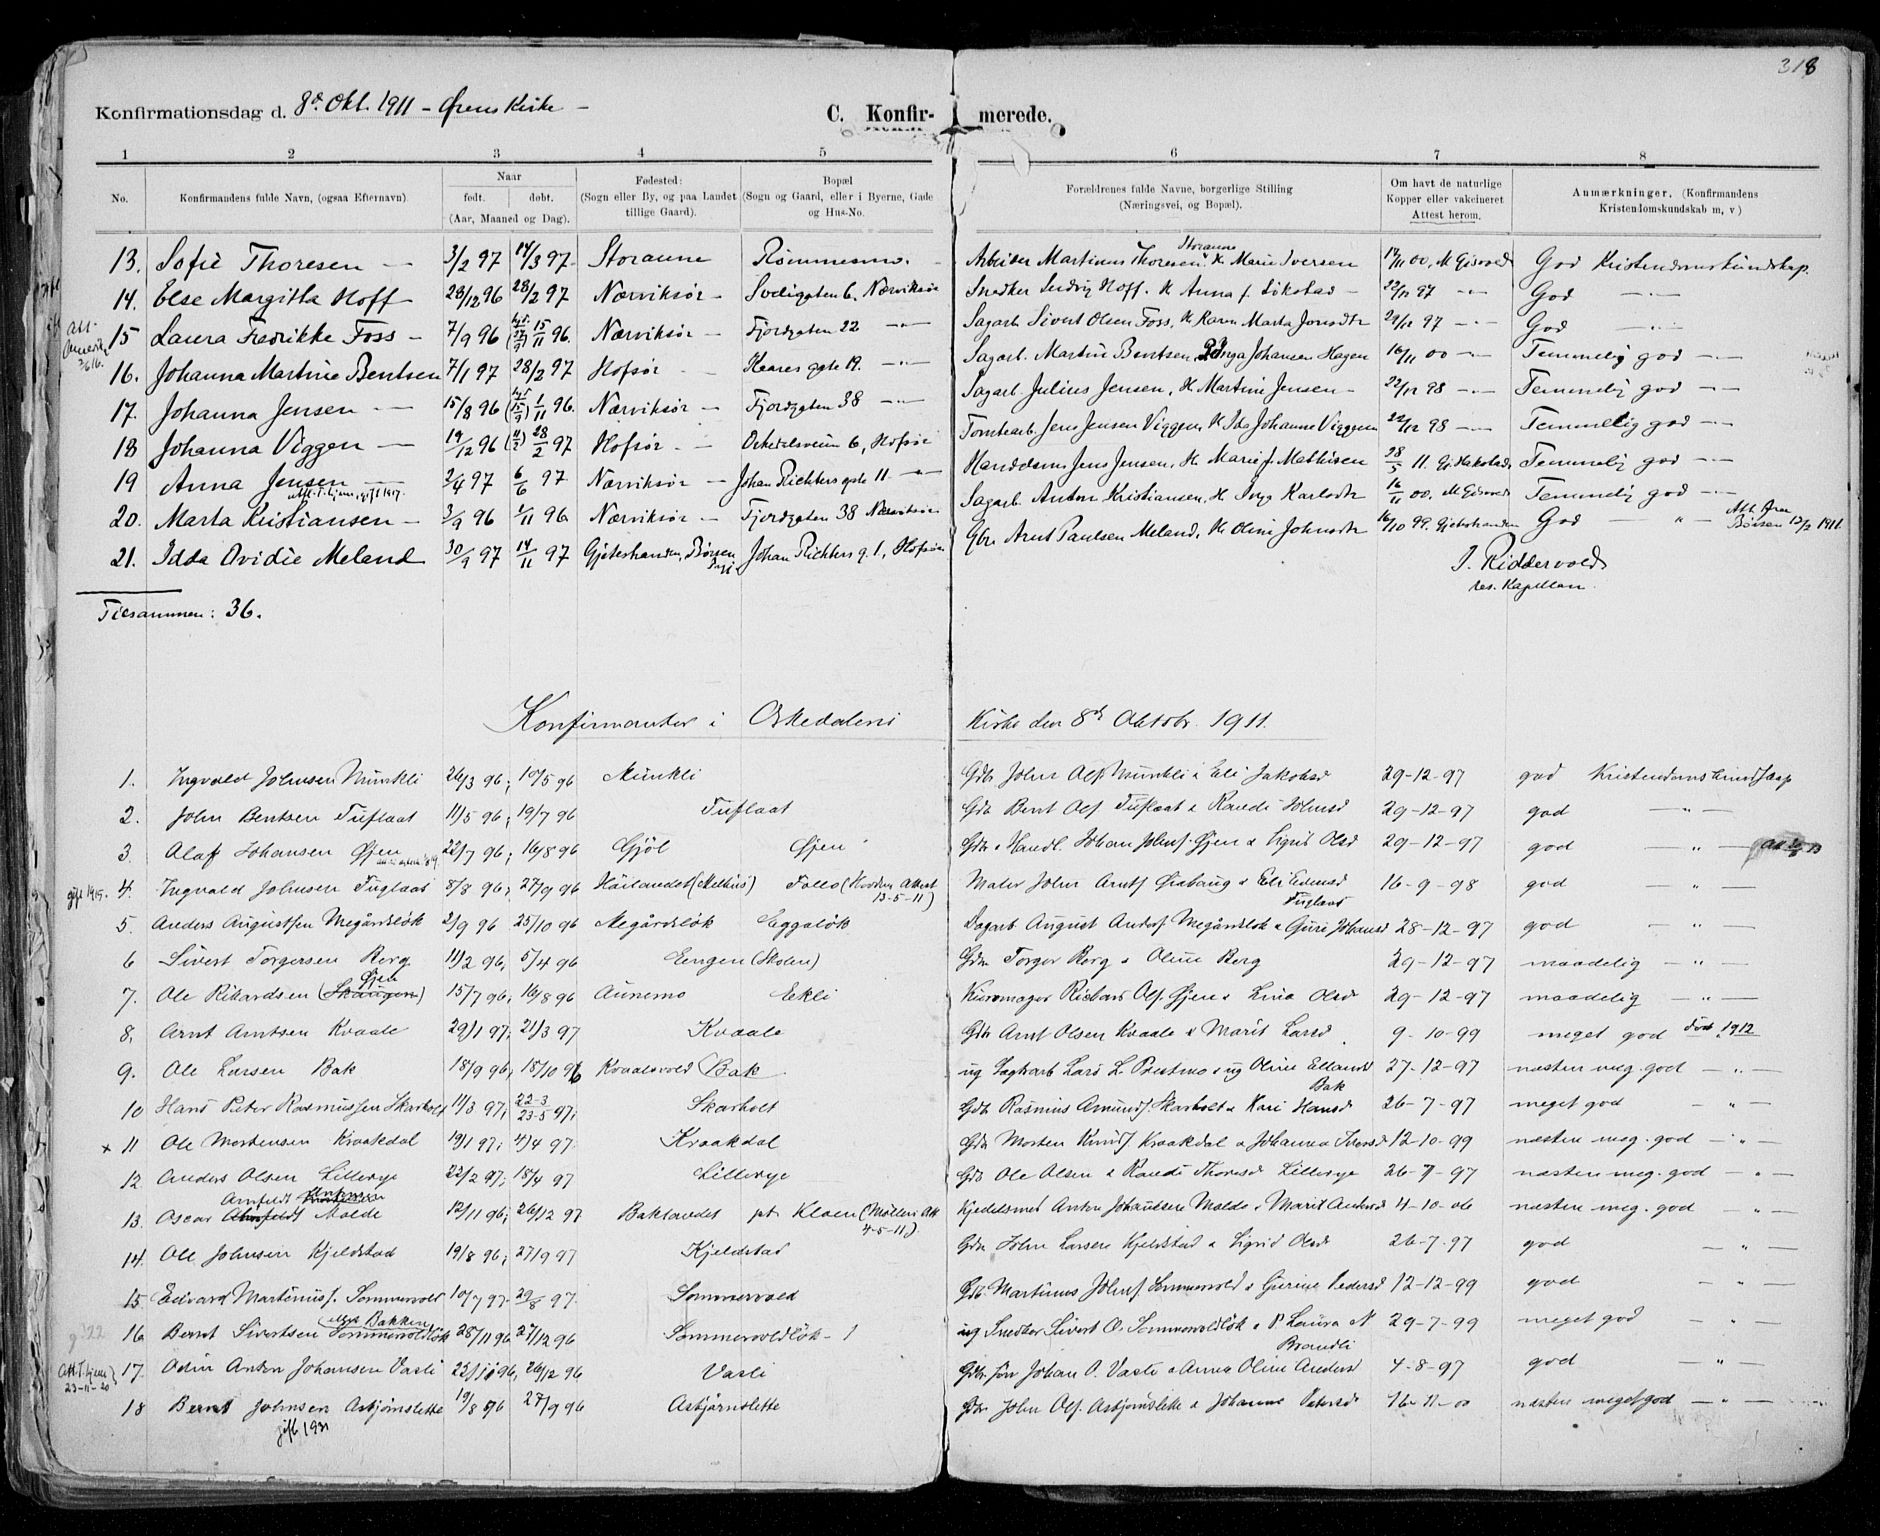 318
Konfirmationsdag d. 8de Okt. 1911 - Ørens Kirke -
C. Konfir- merede.
1 2 3 4 5 6 7 8
No. Konfirmandens fulde Navn, (ogsaa Efternavn). Naar født. døbt. (Aar, Maaned og Dag). Fødested: (Sogn eller By, og paa Landet tillige Gaard). Bopæl (Sogn og Gaard, eller i Byerne, Gade og Hus-No. Forældrenes fulde Navne, borgerlige Stilling (Næringsvei, og Bopæl). Om havt de naturlige Kopper eller vakcineret Attest herom. Anmærkninger. (Konfirmandens Kristendomskundskab m, v)
13. Sofie Thoresen — 3/2 97 14/3 97 Storaune Arbeider Martinus Thoresen Storaune K. Marie Iversen 00, M Gisvold God Kristendomskundskap.
14. Else Margitta Hoff 28/12 96 28/2 97 Nærviksør - 6, Nærviksør Snedker Ludvig Hoff. K Anna f. 22/12 97 -"- God -"-
15 Laura Fredrikke Foss - 7/9 96 15/11 96. Nærviksør - Fjordgaten 22 -"- Sagarb Sivert Olsen Foss, K. Karen Marta Jonsdtr 29/12 97 -"- God -"-
16. Johanna Martine Bentsen 7/1 97 28/2 97 Hofsør - Kaares gate 19. -"- Sagarb. Martin Bentsen, Inga Johansen Hagen 16/11 00 -"- Temmelig god -"-
17. Johanna Jensen — 15/8 96 1/11 96. Nærviksør - Fjordgaten 38 -"- Sagarb Julius Jensen, K. Martine Jensen - 22/12 98 -"- Temmelig god -"-
18 Johanna Viggen — 19/12 96 28/2 97 Hofsør - - Orkedalsveien 6, Hofsør Tomtearb. Jens Jensen Viggen K Ida Johanne Viggen 22/12 98 -"- Temmelig god -"-
19 Anna Jensen gift 1917. 2/4 97 6/6 97 Nærviksør - Johan Richters gate 11 -"- Jens Jensen, K. Marie f. Mathisen 28/5 11. Temmelig god -"-
20. Marta Kristiansen - 3/9 96 1/11 96 Nærviksør - Fjordgaten 38 Nærviksør Sagarb. Anton Kristiansen, K Inga Karlsdtr 16/11 00, M Gisvold Temmelig god -"-
21. Idda Ovidie Meland 30/9 97 14/11 97 Gjeteshanden, Børsen Johan Richters g. 1, Hofsør Gbr. Arnt Paulsen Meland, K. Oline Johnsdtr 16/10 99. God — " — Att. Børsen 12/2 1911.
I. Riddervold
res. Kapellan.
Tilsammen: 36.
Konfirmanter i Orkedalens Kirke den 8de Oktobr. 1911.
1. Ingvald Johnsen Munkli 26/3 96; 10/5 96 Munkli Gdb John Olss Munkli & Eli Jakobsd 29-12-97 god Kristendomskundskap
2. John Bentsen Tuflaat 11/5 96; 19/7 96 Tuflaat Gdb Bent Ols Tuflaat & Randi Johnsd 29-12-97 god — " —
3 Olaf Johansen Øjen 22/7 96; 16/8 96 Gjöl Øjen Gdbr & Handl. Johan Johns. Øjen & Sigrid Olsd 29-12-97 god — " —
gift 1915. 4. Ingvald Johnsen Fuglaas 8/8 96; 27/9 96 Höilandet (Melhus) Follo 13-5-11) Maler John Arnts & Eli Fuglaas 16-9-98 god — " —
5. Anders Augustsen Megårdslök 2/9 96 25/10 96 Megårdslök Eggalök Dagarb August Anders. Megårdslök & Guri Johansd 28-12-97 god — " —
6 Sivert Torgersen Berg 11/2 96; 5/4 96 Engen (Skolen) Gdbr Torger Berg & Oline Berg 29-12-97 maadelig — " —
7. Ole Rikardsen (Skaugen) Øjen 15/7 96; 16/8 96 Aunemo Ekli Rickard Ols. Øjen & Lina Olsd 29-12-97 maadelig — " —
8. Arnt Arntsen Kvaale 29/1 97; 21/3 97 Kvaale Gdb Arnt Olsen Kvaale & Marit Larsd 9-10-99 meget god død 1912
9. Ole Larsen Bak 18/9 96; 18/10 96 Kvaalsvold Bak ug Lars L. Prestmo & ug Oline Bak 27-12-97 næsten meg. god — " —
10 Hans Peter Rasmussen Skarholt 11/3 97; 22-3/23-5 97; Skarholt Gdb Rasmus Amunds. Skarholt & Kari Hansd 26-7-97 meget god — " —
x 11 Ole Mortensen Kraakdal 19/1 97; 4/4 97. Kraakdal Gdb Morten Knuds. Kraakdal & Johanna Iversd 12-10-99 næsten meg. god — " —
12 Anders Olsen Lillerye 22/2 97; 18/4 97 Lillerye Gdb Ole Olsen & Randi Thoresd Lillerye 26-7-97 næsten meg. god — " —
13. Oscar Arnfeldt Molde 12/11 96; 26/12 97 Baklandet pt. Kloen 4-5-11). Kjedelsmed Anton Johansen Molde & Marit Andersd 4-10-06 næsten meg. god — " —
14. Ole Johnsen Kjeldstad 19/8 96; 27/9 97 Kjeldstad Gdbr John Larsen Kjeldstad & Sigrid Olsd 26-7-97 god — " —
15 Edvard Martinuss. Sommervold 10/7 97. 29/8 97. Sommervold Gdb. Martinus Johns. Sommervold & Gurine Pedersd 12-12-99 god — " —
g '22 16. Bernt Sivertsen Sommervoldlök Bakken 28/11 96 27/12 96 Sommervoldlök - 1 ug Snedker Sivert O. Sommervoldlök & P Laura N Brandli 29-7-99 meget god — " —
Att. T. hjem 23-11-20 17. Odin Anton Johansen Vasli 22/11 96, 26/12 96 Vasli Gdbr Johan O. Vasli & Anna Oline Andersd 4-8-97 god "
18 Bernt Johnsen Asbjørnslette 19/8 96 27/9 96 Asbjørnslette Gdbr John Ols. Asbjørnslette & Johanne Petersd 16-11-00 næsten meget god — " —
gift 1921